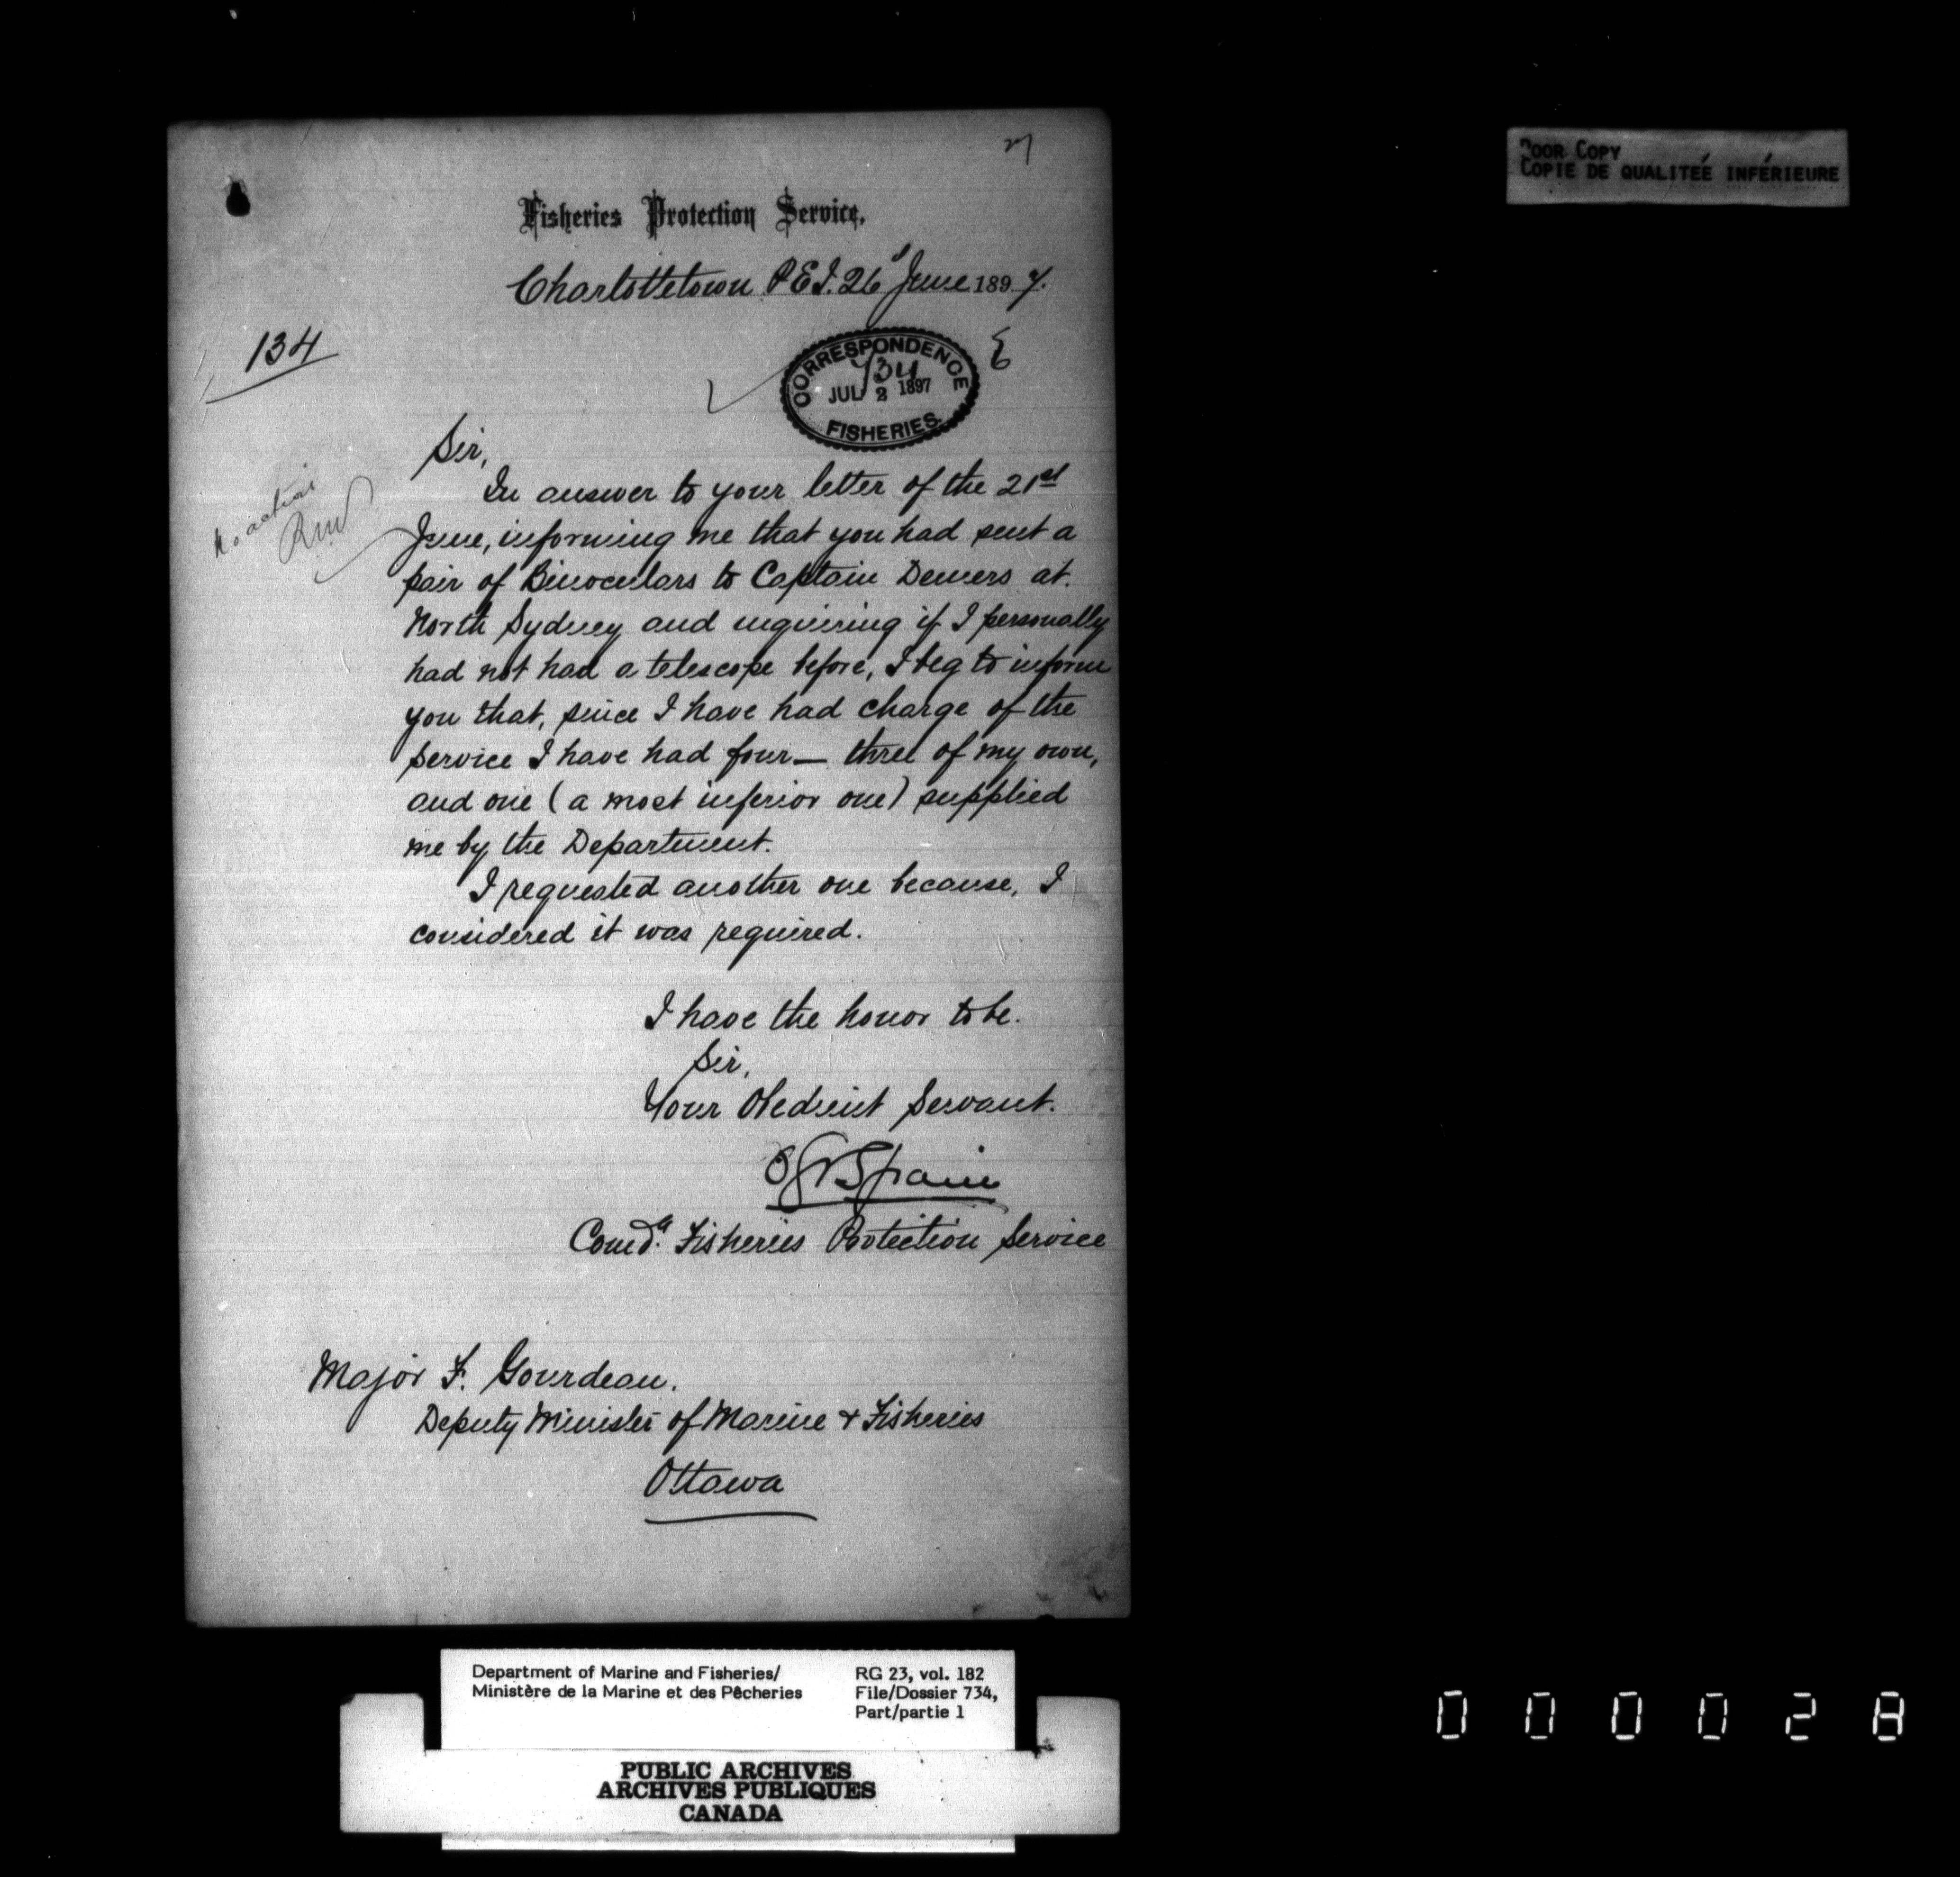 27
POOR COPY
COPIE DE QUALITEÉ INFÉRIEURE
Fisheries Protection Service.
Charlottetown P.E.I. 26 June 1897.
134
CORRESPONDENCE
734
JUL 2 1897
FISHERIES
Sir,
No action
In answer to your letter of the 21st
June, informing me that you had sent a
pair of Binoculars to Captain Demers at.
North Sydney and inquiring if I personally
had not had a telescope before, I beg to inform
you that, since I have had charge of the
service I have had four — three of my own,
and one (a most inferior one) supplied
me by the Department.
I requested another one because, I
considered it was required.
I have the honor to be.
Sir,
Your Obedient Servant.
OGVSpain
Comdg. Fisheries Protection Service
Major F. Gourdeau.
Deputy Minister of Marine & Fisheries
Ottawa
Department of Marine and Fisheries/
Ministère de la Marine et des Pêcheries
RG 23, vol. 182
File/Dossier 734,
Part/partie 1
PUBLIC ARCHIVES
ARCHIVES PUBLIQUES
CANADA
000028